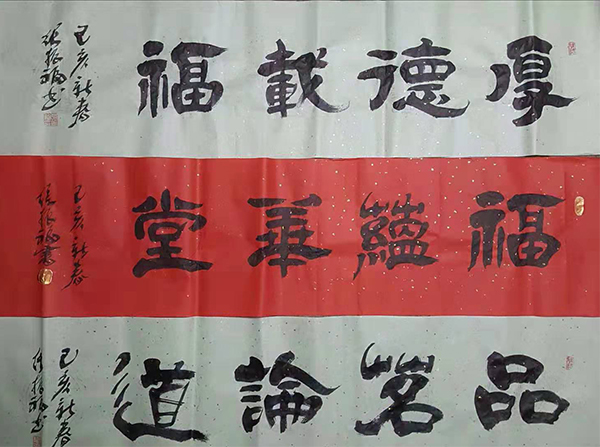 厚德載福
己亥新春
張振福書
福蘊華堂
己亥新春
張振福書
品茗論道
己亥新春
張振福書